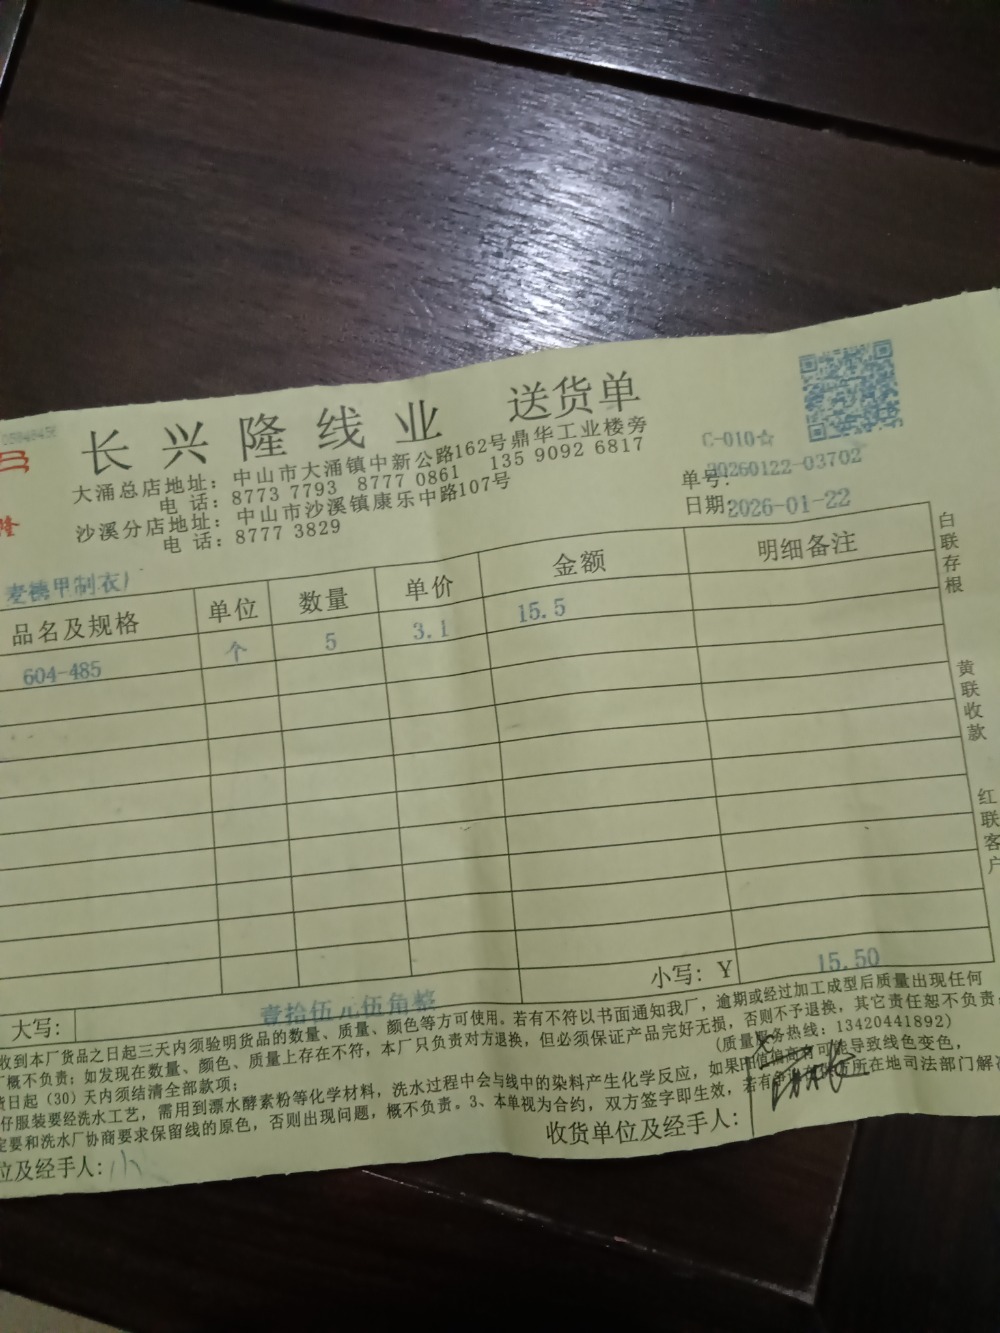 长兴隆线业 送货单
大涌总店地址：中山市大涌镇中新公路162号鼎华工业楼旁
电话：8773 7793 8777 0861 135 9092 6817
沙溪分店地址：中山市沙溪镇康乐中路107号
电话：8777 3829
C-010☆
单号：20260122-03702
日期：2026-01-22
隆
麦德甲制衣厂
品名及规格 单位 数量 单价 金额 明细备注
604-485 个 5 3.1 15.5
白联存根
黄联收款
红联客户
小写：Y 15.50
大写： 壹拾伍元伍角整
收到本厂货品之日起三天内须验明货品的数量、质量、颜色等方可使用。若有不符以书面通知我厂，逾期或经过加工成型后质量出现任何
概不负责；如发现在数量、颜色、质量上存在不符，本厂只负责对方退换，但必须保证产品完好无损，否则不予退换，其它责任恕不负责；
货日起（30）天内须结清全部款项； (质量服务热线：13420441892)
仔服装要经洗水工艺，需用到漂水酵素粉等化学材料，洗水过程中会与线中的染料产生化学反应，如果PH值偏高有可能导致线色变色，
定要和洗水厂协商要求保留线的原色，否则出现问题，概不负责。3、本单视为合约，双方签字即生效，若有争 所在地司法部门解决
位及经手人： 收货单位及经手人：